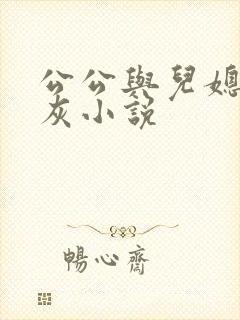 公公與兒媳
灰小說
暢心齋